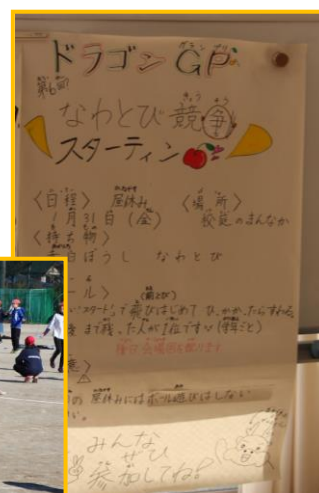 ドラゴンGP
第6回
なわとび競争
スターティン
〈日程〉 昼休み 〈場所〉
1月31日(金) 校庭のまんなか
〈持ち物〉
赤白ぼうし なわとび
ール〉 (前とび)
スタートで飛びはじめて ひっかかったらすわる
まで残った人が1位です (学年ごと)
の昼休みにはボール遊びはしない
みんな
ぜひ
参加してね!